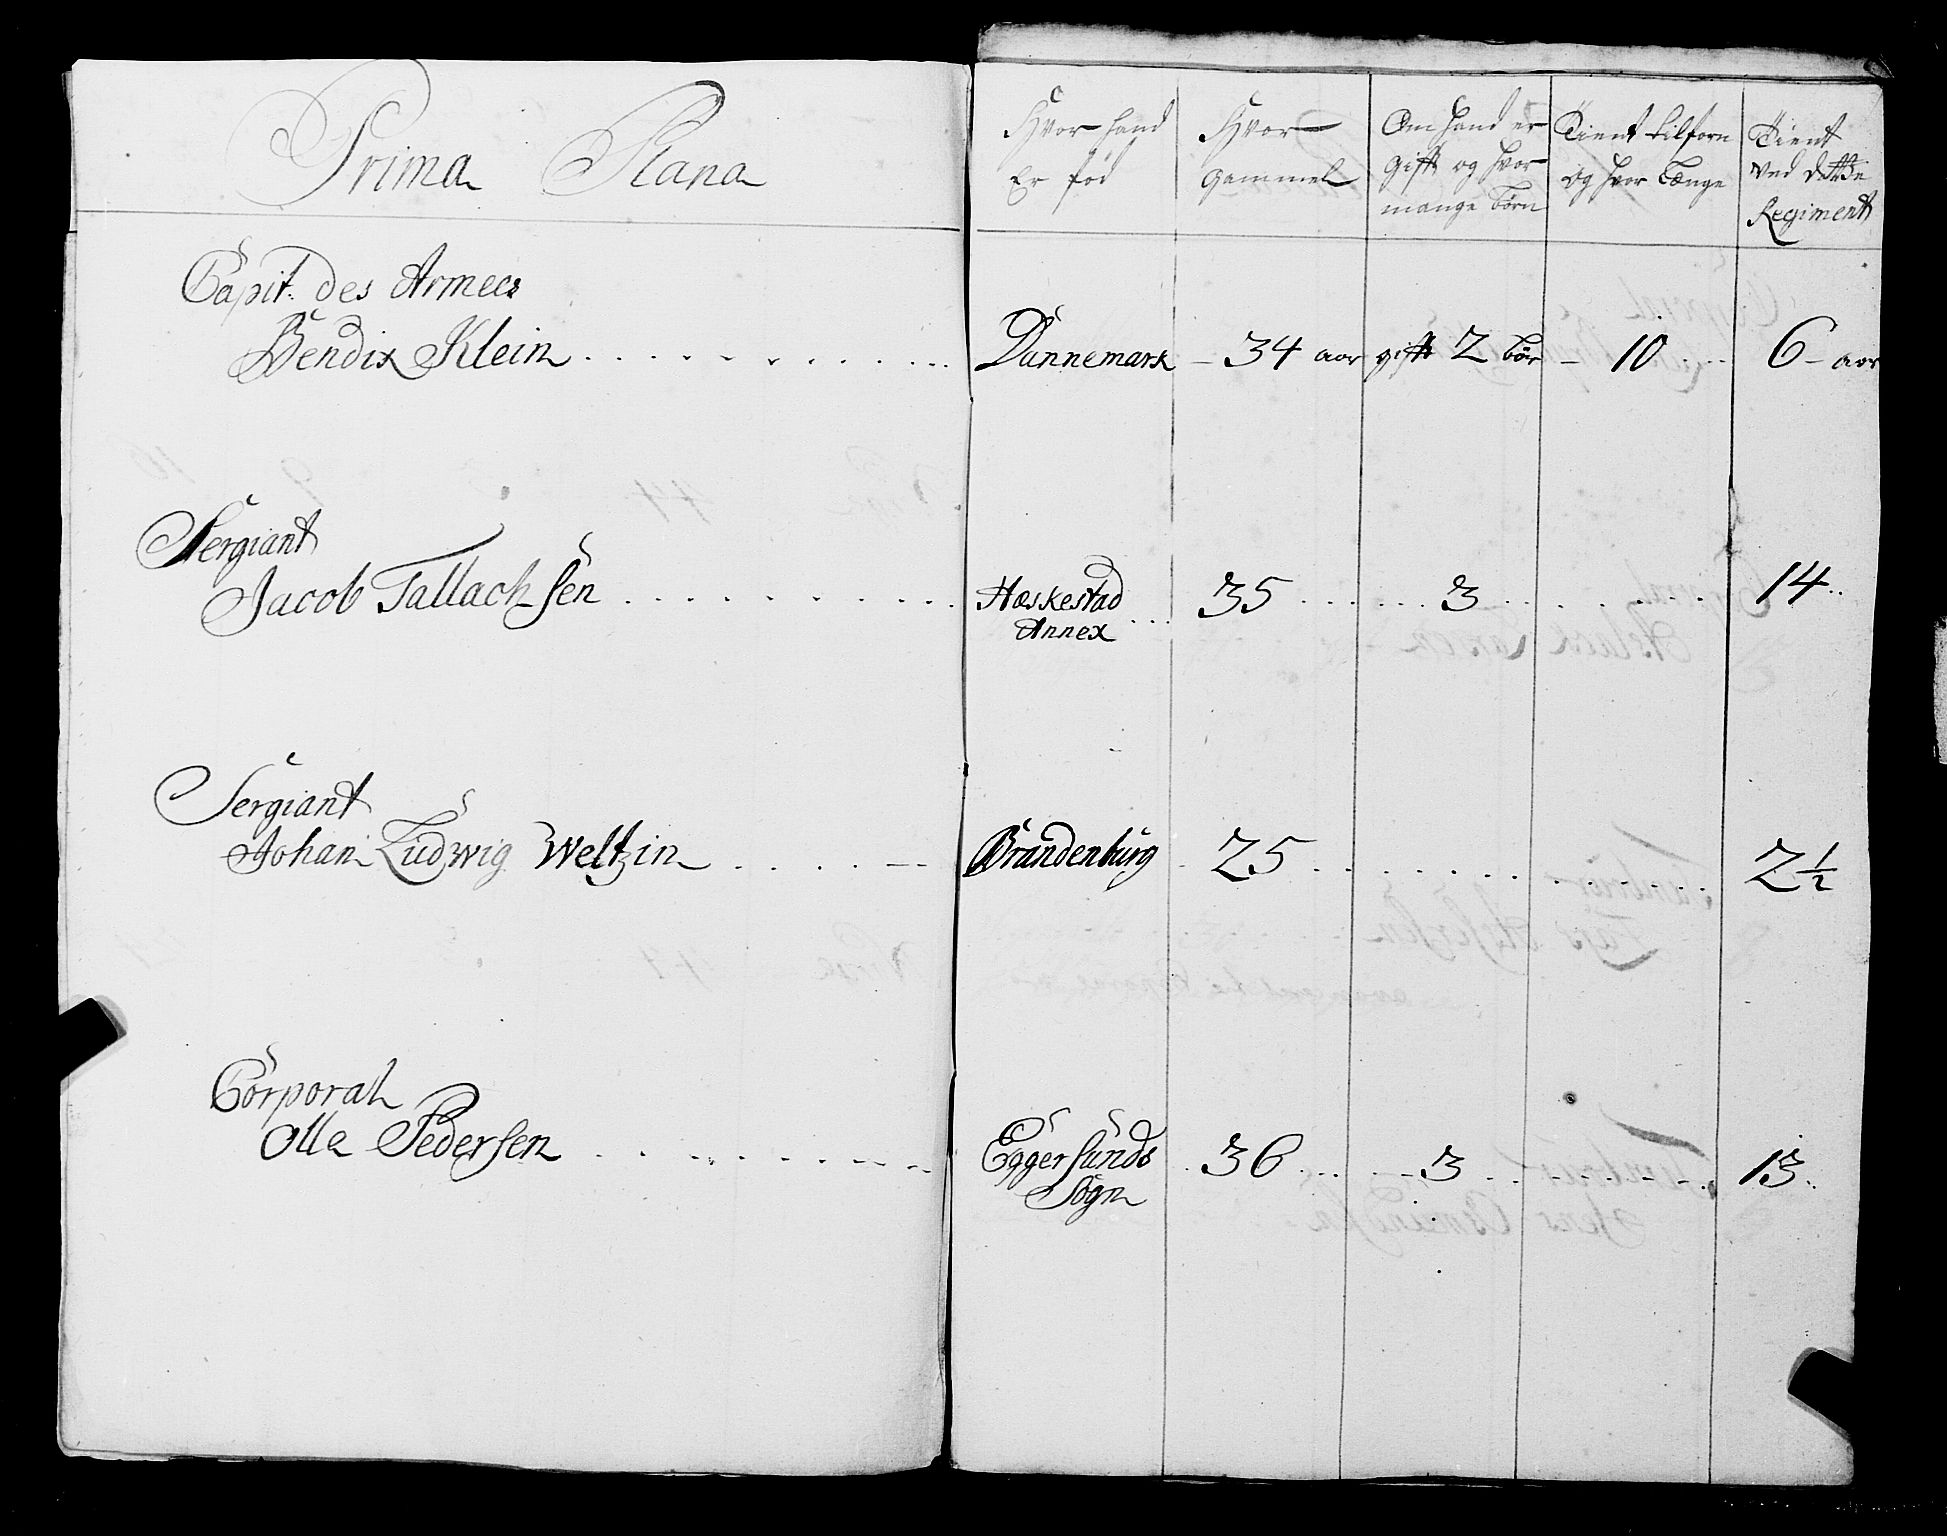 Prima Plana
Hvor hand Er fød
Hvor gammel
Om hand er gift og hvor mange børn
Tient tilforn og hvor Længe
Tient ved dette Regiment
Capit. des Armees
Bendix Klein Dannemark 34 aar gift 2 bør 10 6 aar
Sergiant
Jacob Tallachsen Hæskestad 35 3 14
Annex
Sergiant
Johan Ludwig Weltzin Brandenburg 25 2 1/2
Corporal
Olle Pedersen Eggersunds 36 3 13
Sogn